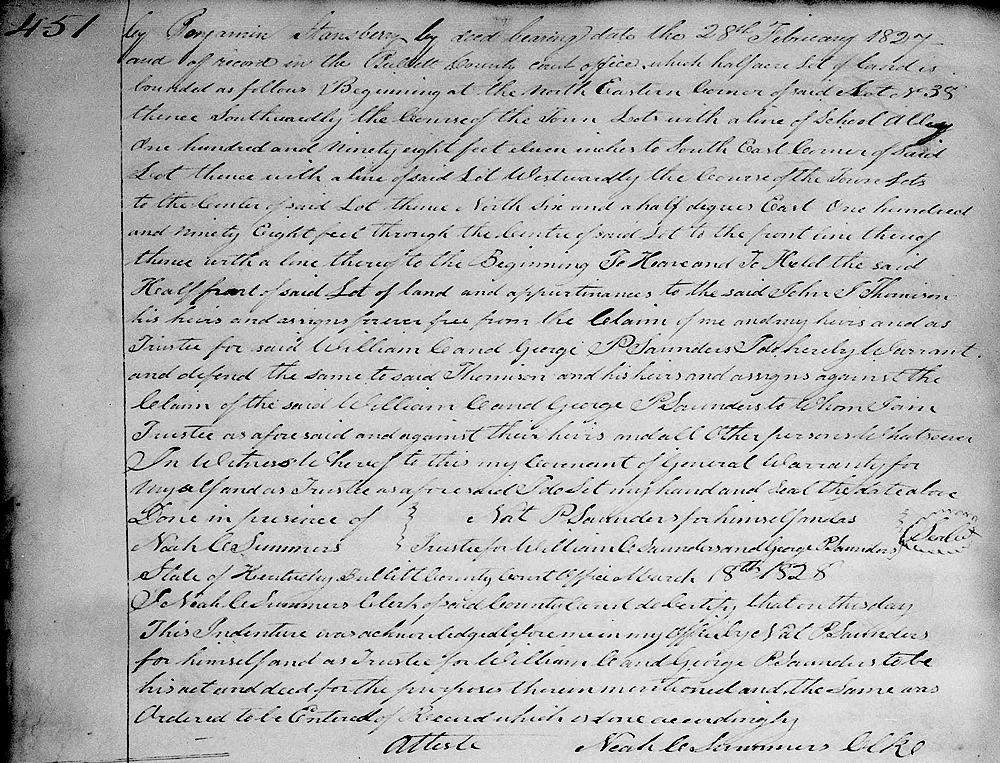 451
by Benjamin Stansberry by deed bearing date the 28th February 1827
and of record in the Bullitt County court office which half acre Lot of Land is
bounded as follows Beginning at the North Eastern Corner of said Lot No 38
thence Southwardly the Course of the Town Lots with a line of School Alley
One hundred and Ninety eight feet eleven inches to South East Corner of Said
Lot thence with a line of said Lot Westwardly the Course of the Town Lots
to the Center of said Lot thence North Six and a half degrees East One hundred
and ninety Eight feet through the Centre of said Lot to the front line thereof
thence with a line thereof to the Beginning To Have and To Hold the said
Half part of said Lot of land and appurtinances to the said John J Thomison
his heirs and assigns forever free from the Claim of me and my heirs and as
Trustee for said William C and George P Saunders I do hereby Warrant
and defend the same to said Thomison and his heirs and assigns against the
Claim of the said William C and George P Saunders to Whom I am
Trustee as afore said and against their heirs and all Other persons Whatsoever
In Witness Whereof to this my Covenant of General Warranty for
Myself and as Trustee as afore said I do Set my hand and Seal the date above
Done in presence of } Nat P Saunders for himself and as
Noah C Summers } Trustee for William C Saunders and George P Saunders (Seal)
State of Kentucky Bullitt County Court Office March 18th 1828
I Noah C Summers Clerk of said County Court do Certify that on this day
This Indenture was acknowledged before me in my office by Nat P Saunders
for himself and as Trustee for William C and George P Saunders to be
his act and deed for the purposes therein mentioned and the Same was
Ordered to be Entered of Record which is done accordingly
Atteste Noah C Summers Clke